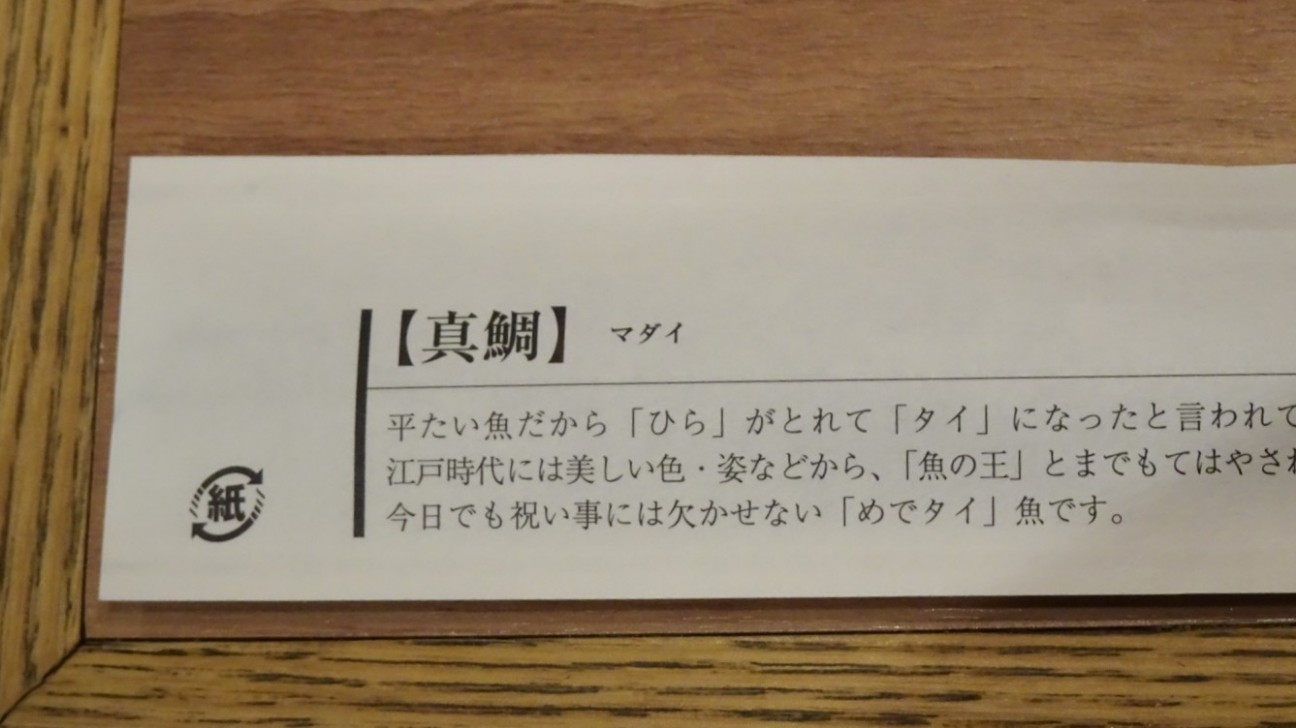 【真鯛】 マダイ
平たい魚だから「ひら」がとれて「タイ」になったと言われて
江戸時代には美しい色・姿などから、「魚の王」とまでもてはやさ
今日でも祝い事には欠かせない「めでタイ」魚です。
紙